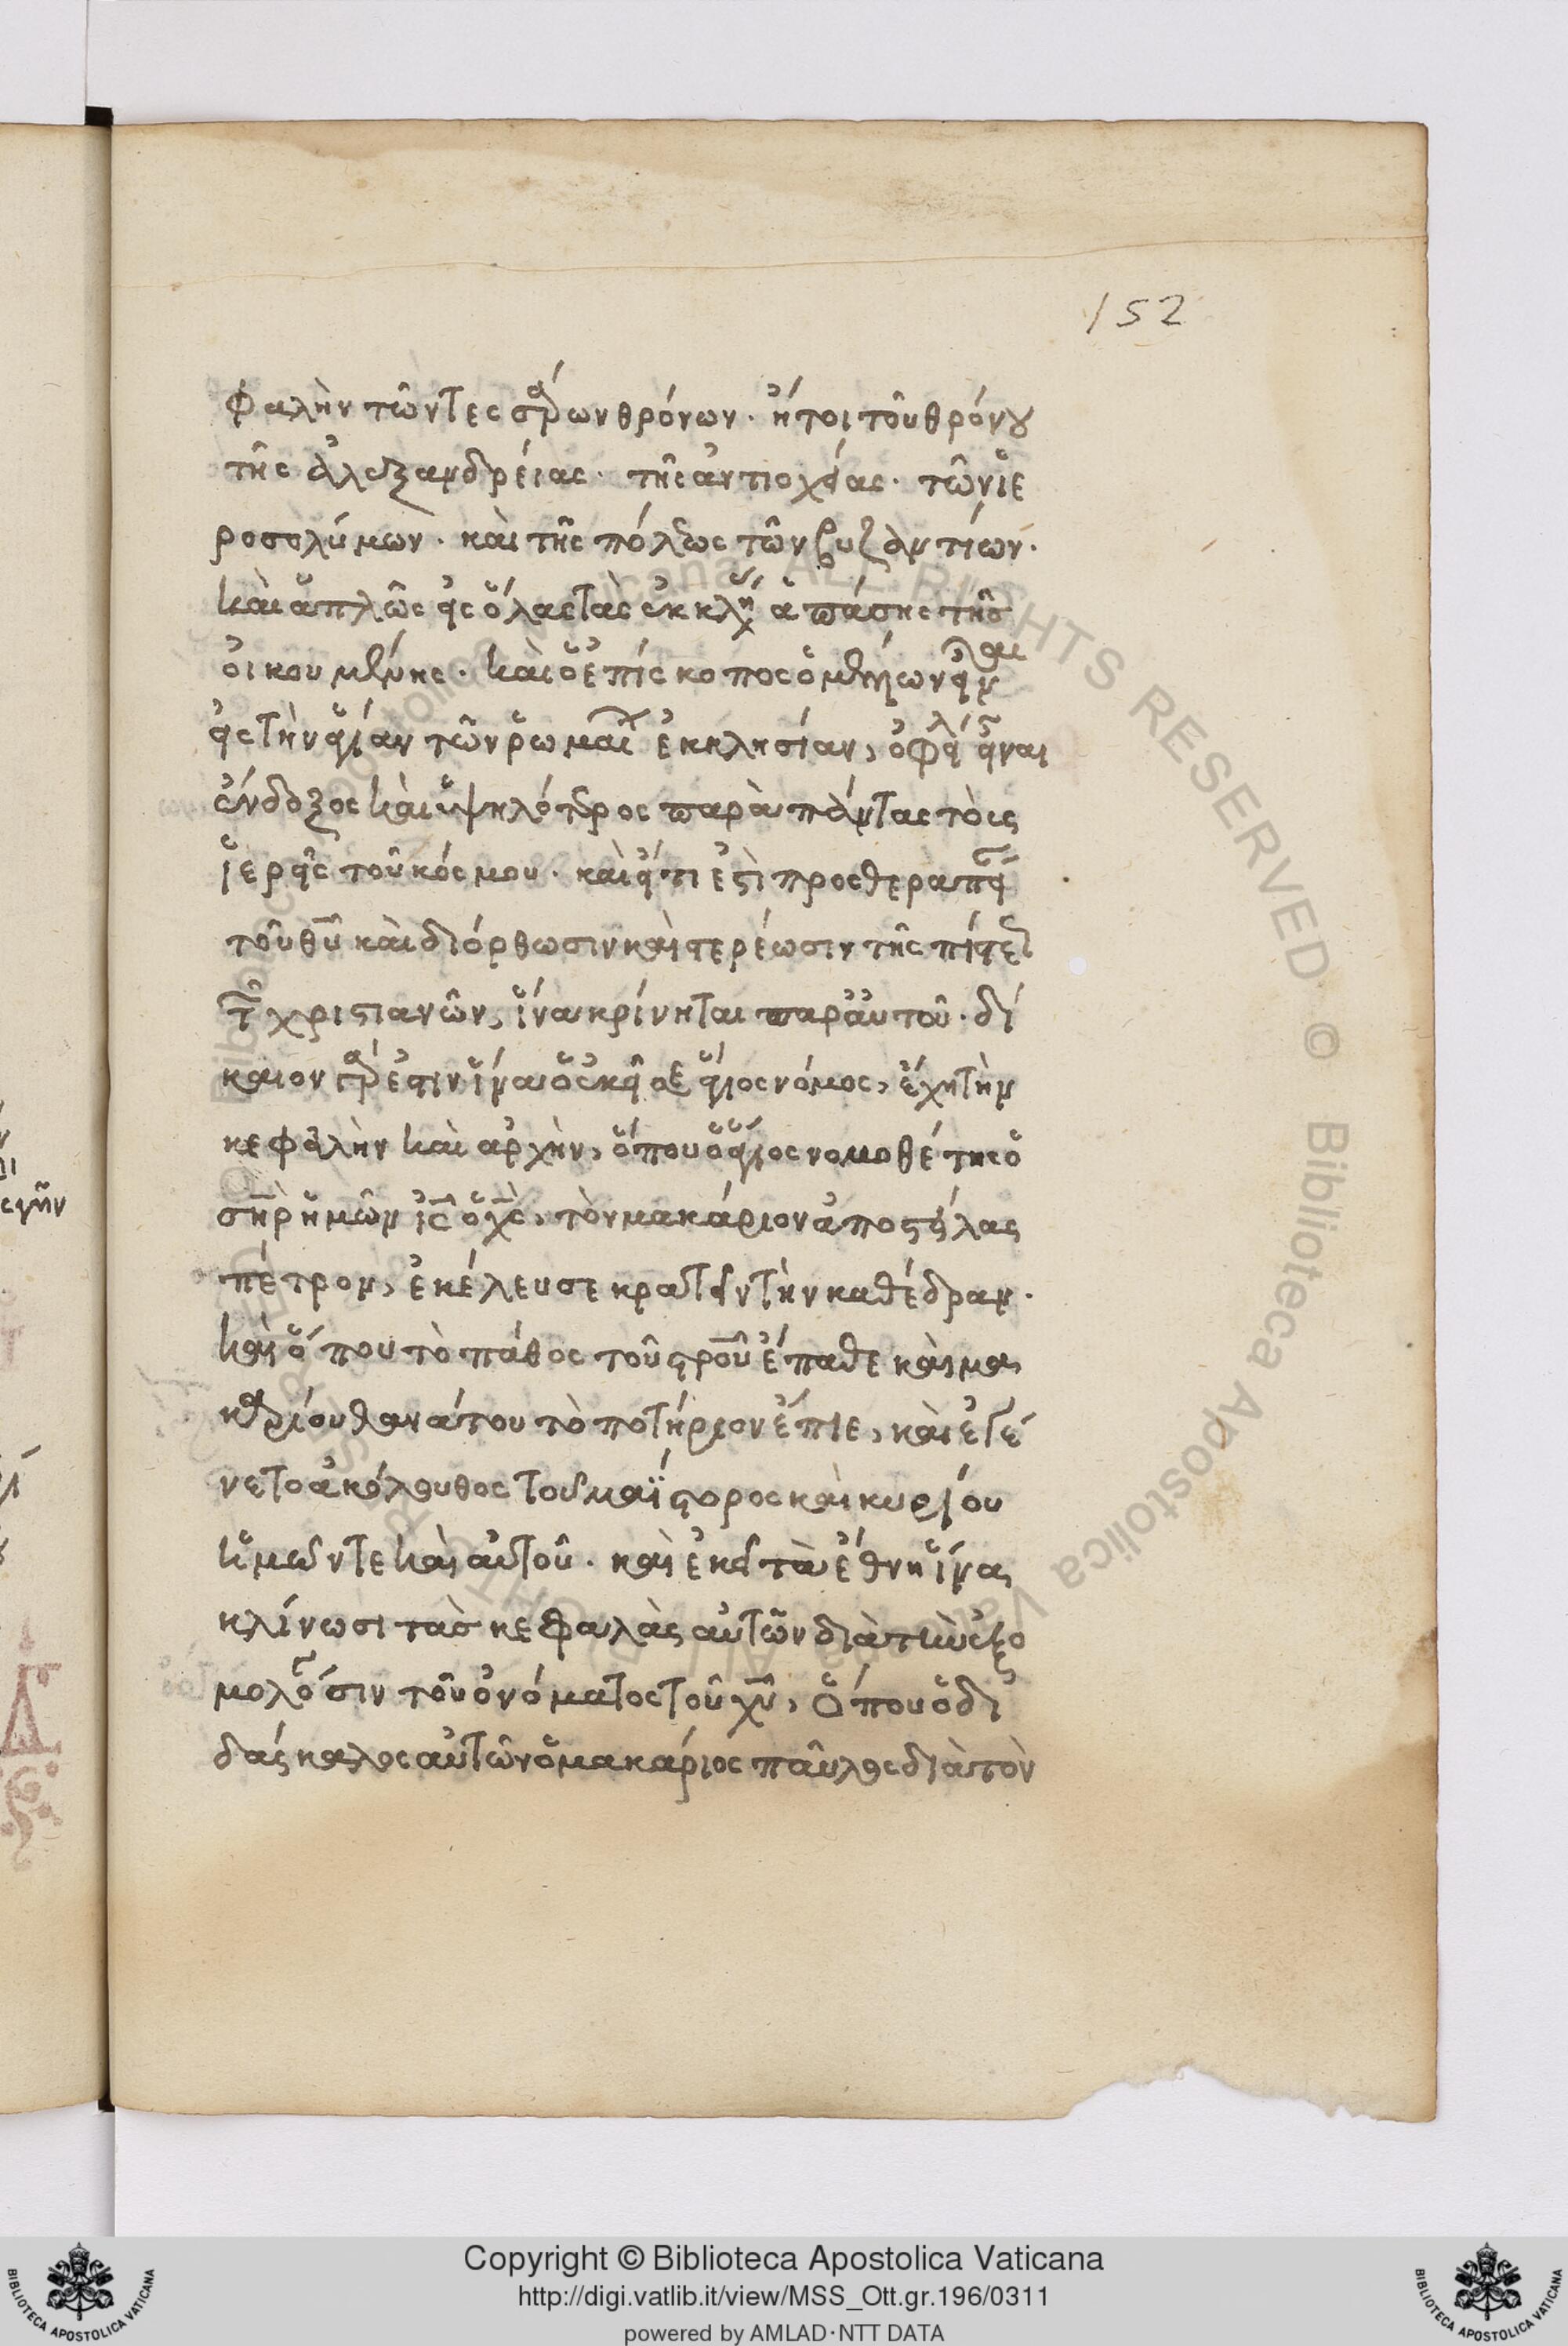 152
φαλὴν τῶν τεσσάρων θρόνων· ἤτοι τοῦ θρόνου
τῆς ἀλεξανδρείας· τῆς ἀντιοχείας· τῶν ἱε
ροσολύμων· καὶ τῆς πόλεως τῶν βυζαντίων·
καὶ ἁπλῶς εἰς ὅλας τὰς ἐκκλη ἁπάσης τῆς
οἰκουμένης· καὶ ὁ ἐπίσκοπος ὁ μέλλων εἶν
εἰς τὴν ἁγίαν τῶν ῥωμαί ἐκκλησίαν, ὀφεί εἶναι
ἔνδοξος καὶ ὑψηλότερος παρὰ πάντας τοὺς
ἱερεῖς τοῦ κόσμου· καὶ εἴ τι ἐστὶ πρὸς θεραπεί
τοῦ θυ καὶ διόρθωσιν καὶ στερέωσιν τῆς πίστε
τ χριστιανῶν, ἵνα κρίνηται παρ' αὐτοῦ· δί
καιον γάρ ἐστιν ἵνα ὁ ἐκεῖσε ἅγιος νόμος, ἔχη τὴν
κεφαλὴν καὶ ἀρχὴν, ὅπου ὁ ἅγιος νομοθέτης ὁ
σηρ ἡμῶν ις ὁ χς, τὸν μακάριον ἀποστείλας
πέτρον, ἐκέλευσε κρατεῖν τὴν καθέδραν·
καὶ ὅπου τὸ πάθος τοῦ στροῦ ἔπαθε καὶ μα
καρίου θανάτου τὸ ποτήριον ἔπιε, καὶ ἐγέ
νετο ἀκόλουθος τοῦ μαΐστορος καὶ κυρίου
ἡμῶν τε καὶ αὐτοῦ· καὶ ἐκεῖ τὰ ἔθνη ἵνα
κλίνωσι τὰς κεφαλὰς αὐτῶν διὰ τὴν ἐξο
μολόγησιν τοῦ ὀνόματος τοῦ χυ, ὅπου ὁ δι
δάσκαλος αὐτῶν ὁ μακάριος παῦλος διὰ τὸν
Copyright © Biblioteca Apostolica Vaticana
http://digi.vatlib.it/view/MSS_Ott.gr.196/0311
powered by AMLAD·NTT DATA